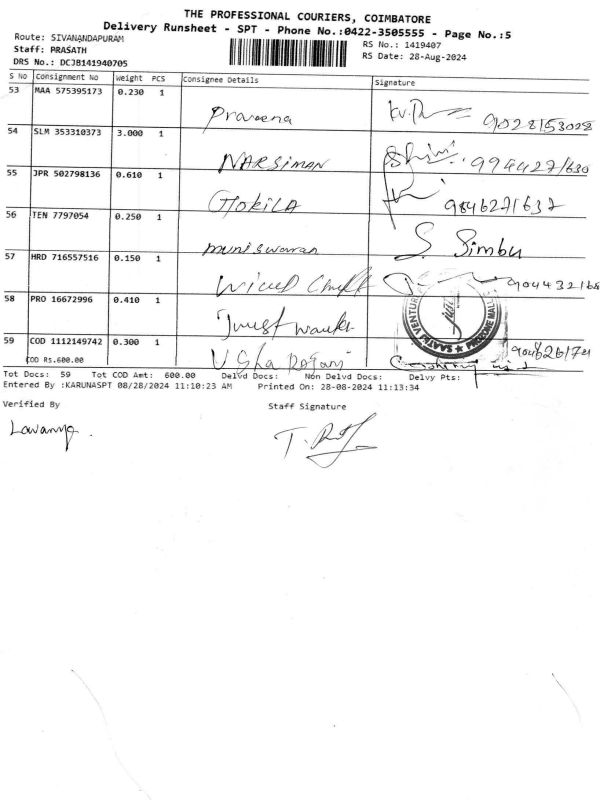 THE PROFESSIONAL COURIERS, COIMBATORE
Delivery Runsheet - SPT - Phone No.:0422-3505555 - Page No.:5
Route: SIVANANDAPURAM
Staff: PRASATH
DRS No.: DCJB141940705
RS No.: 1419407
RS Date: 28-Aug-2024
S No Consignment No Weight PCS Consignee Details Signature
53 MAA 575395173 0.230 1
Praveena
54 SLM 353310373 3.000 1
NARSIMAN
55 JPR 502798136 0.610 1
GOKILA 9846271637
56 TEN 7797054 0.250 1
muniswaran S. Simbu
57 HRD 716557516 0.150 1
58 PRO 16672996 0.410 1
PROZONE MALL
59 COD 1112149742 0.300 1
COD Rs.600.00
Usha
Tot Docs: 59 Tot COD Amt: 600.00 Delvd Docs: Non Delvd Docs: Delvy Pts:
Entered By :KARUNASPT 08/28/2024 11:10:23 AM Printed On: 28-08-2024 11:13:34
Verified By Staff Signature
Lavanya